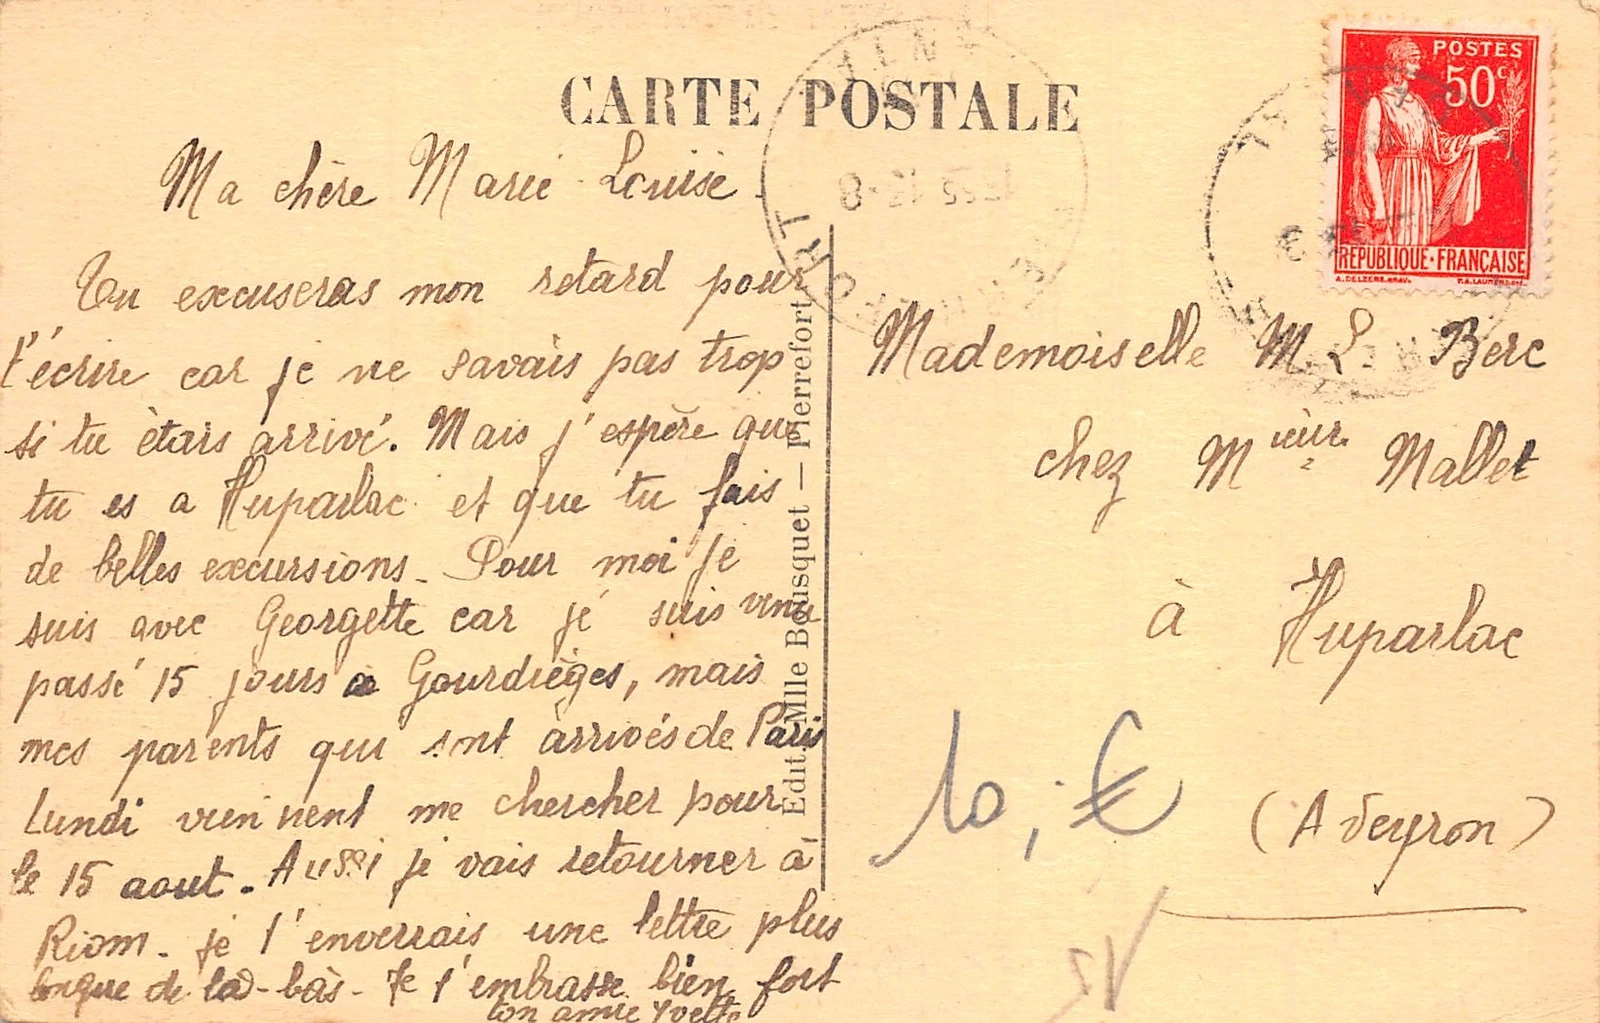 CARTE POSTALE
Ma chère Marie Louise.
Tu excuseras mon retard pour
t'écrire car je ne savais pas trop
si tu ètais arrivé. Mais j'espère que
tu es a Huparlac et que tu fais
de belles excursions. Pour moi je
suis avec Georgette car je suis venu
passé 15 jours a Gourdièges, mais
mes parents qui sont arrivés de Paris
Lundi viennent me chercher pour
le 15 aout. Aussi je vais retourner à
Riom. je t'enverrais une lettre plus
longue de la-bàs. Je t'embrasse bien fort
ton amie Yvette
Edit. Mlle Bousquet — Pierrefort
POSTES
50c
REPUBLIQUE·FRANÇAISE
Mademoiselle M. L. Berc
chez Mieur Mallet
à Huparlac
(Aveyron)
10,-€